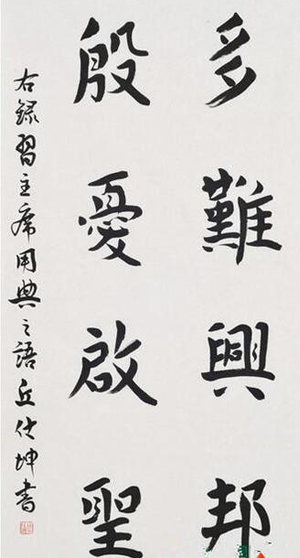 多難興邦
殷憂啟聖
右錄習主席用典之語丘仕坤書